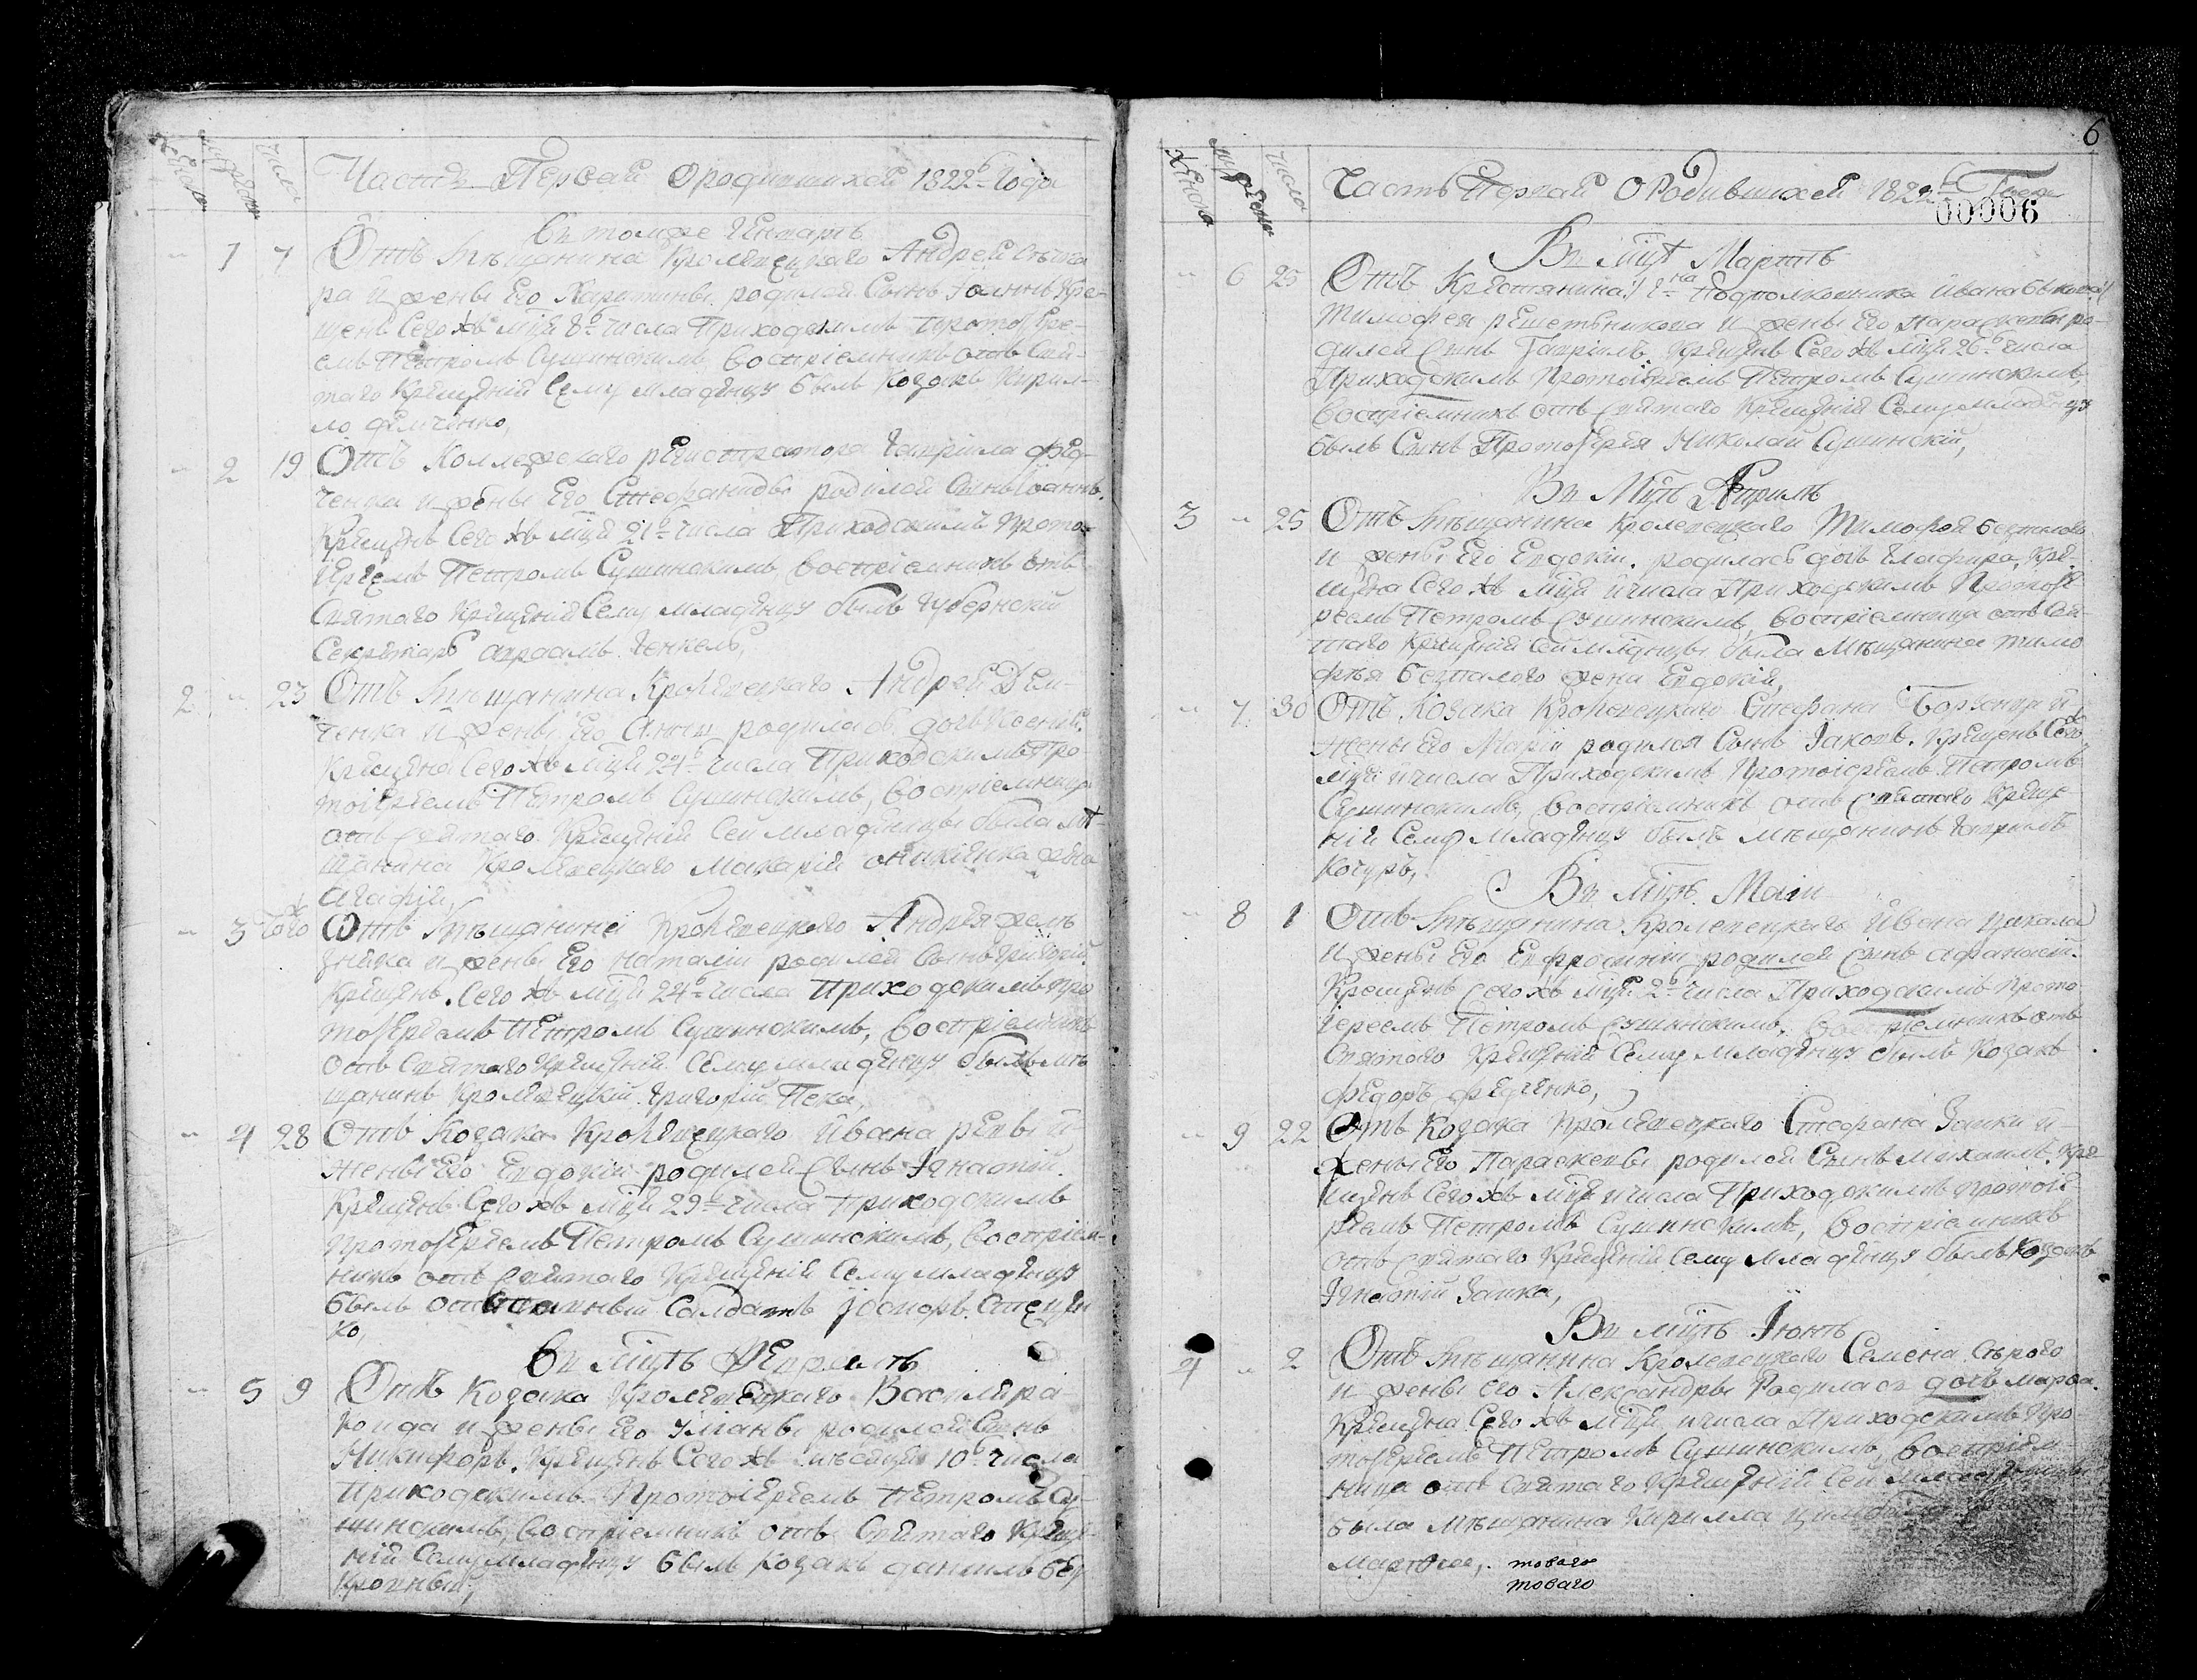 Часть Первая о родившихся 1822го Года
числа
1 7 Отъ мѣщанина Кролевецкаго Андрея
ра и жены Его Харитины родился Сынъ Іоаннъ Кре-
щенъ Сего жъ мця 8го числа Приходскимъ протоіере-
емъ Петромъ Сушинскимъ, воспріемникъ отъ Свя-
таго Крещенія Сему младенцу былъ Козакъ Кирил-
ло Демченко,
2 19 Отъ Коллежскаго регистратора Гавріила Фед-
ченка и жены Его Стефаниды родился Сынъ Іоаннъ.
Крещенъ Сего жъ мця 21го числа Приходскимъ прото-
іереемъ Петромъ Сушинскимъ, воспріемникъ отъ
Святаго Крещенія Сему младенцу былъ Губернскій
Секретарь
2 23 Отъ мѣщанина Кролевецкаго Андрея Дем-
ченка и жены Его Анны родилась дочь Ксенія.
Крещена Сего жъ мця 24го числа Приходскимъ про-
тоіереемъ Петромъ Сушинскимъ, воспріемница
отъ Святаго Крещенія Сей младеницы была мѣ-
щанина Кролевецкаго Макарія жена
Агафія,
3 тогожъ Отъ мѣщанина Кролевецкаго Андрея
и жены Его Наталіи родился Сынъ Григорій.
Крещенъ Сего жъ мця 24го числа Приходскимъ про
тоіереемъ Петромъ Сушинскимъ, воспріемникъ
отъ Святаго Крещенія Сему младенцу былъ мѣ
щанинъ Кролевецкій Григорій Пека,
4 28 Отъ Козака Кролевецкаго Ивана Репы и
жены Его Евдокіи родился Сынъ Игнатій.
Крещенъ Сего жъ мця 29го числа Приходскимъ
Протоіереемъ Петромъ Сушинскимъ, воспріем-
никъ отъ Святаго Крещенія Сему младенцу
былъ отставный Салдатъ Стецен
ко,
Въ мцѣ Февралѣ
5 9 Отъ Козака Кролевецкаго Василія
и жены Его Ульяны родился Сынъ
Никифоръ. Крещенъ Сего жъ мѣсяца 10го числа
Приходскимъ Протоіереемъ Петромъ Су-
шинскимъ, воспріемникъ отъ Святаго Креще-
нія Сему младенцу былъ Козакъ Даніилъ Без
кровный,
6
Часть Первая о Родившихся 1822го Года
00006
числа
Въ мцѣ Мартѣ
6 25 Отъ Крестянина Подполковника Ивана
Тимофея Решетникова и жены Его Параскевы ро-
дился Сынъ Гавріилъ. Крещенъ Сего жъ мця 26го числа
Приходскимъ Протоіереемъ Петромъ Сушинскимъ,
воспріемникъ отъ Святаго Крещенія Сему младенцу
былъ Сынъ Протоіерея Николай Сушинскій,
Въ Мцѣ Априлѣ
3 25 Отъ мѣщанина Кролевецкаго Тимофея Безпалого
и жены Его Евдокіи. родилась дочь Глафира. Кре-
щена Сего жъ мця и числа Приходскимъ Протоіе
реемъ Петромъ Сушинскимъ, воспріемница отъ Свя-
таго Крещенія Сей младеницы была Мѣщанина Тимо
фѣя Безпалого жена Евдокія,
7 30 Отъ Козака Кролевецкаго Стефана и
жены Его Маріи родился Сынъ Іаковъ. Крещенъ Сегожъ
мця и числа Приходскимъ Протоіереемъ Петромъ
Сушинскимъ, воспріемникъ отъ Святаго Креще-
нія Сему младенцу былъ мѣщанинъ Гавріилъ
Кочуръ,
Въ мцѣ Маіи
8 1 Отъ мѣщанина Кролевецкаго Ивана Цикала
и жены Его Евфросиніи родился Сынъ Афанасій.
Крещенъ Сего жъ мця 2го числа Приходскимъ Прото
іереемъ Петромъ Сушинскимъ. воспріемникъ отъ
Святаго Крещенія Сему младенцу былъ Козакъ
Федоръ Федченко,
9 22 Отъ Козака Кролевецкаго Стефана Заики и
жены Его Параскевы родился Сынъ Михаилъ. Кре
щенъ Сего жъ мця и числа Приходскимъ протоіе
реемъ Петромъ Сушинскимъ, воспріемникъ
отъ Святаго Крещенія Сему младенцу былъ Козакъ
Игнатій Заика,
Въ мцѣ Іюнѣ
4 2 Отъ мѣщанина Кролевецкаго Семена Сѣрого
и жены его Александры Родилась дочь Марфа.
Крещена Сего жъ мця и числа Приходскимъ Про-
тоіереемъ Петромъ Сушинскимъ, воспріем-
ница отъ Святаго Крещенія Сей младеницы
была мѣщанина Кирилла
товаго
товаго